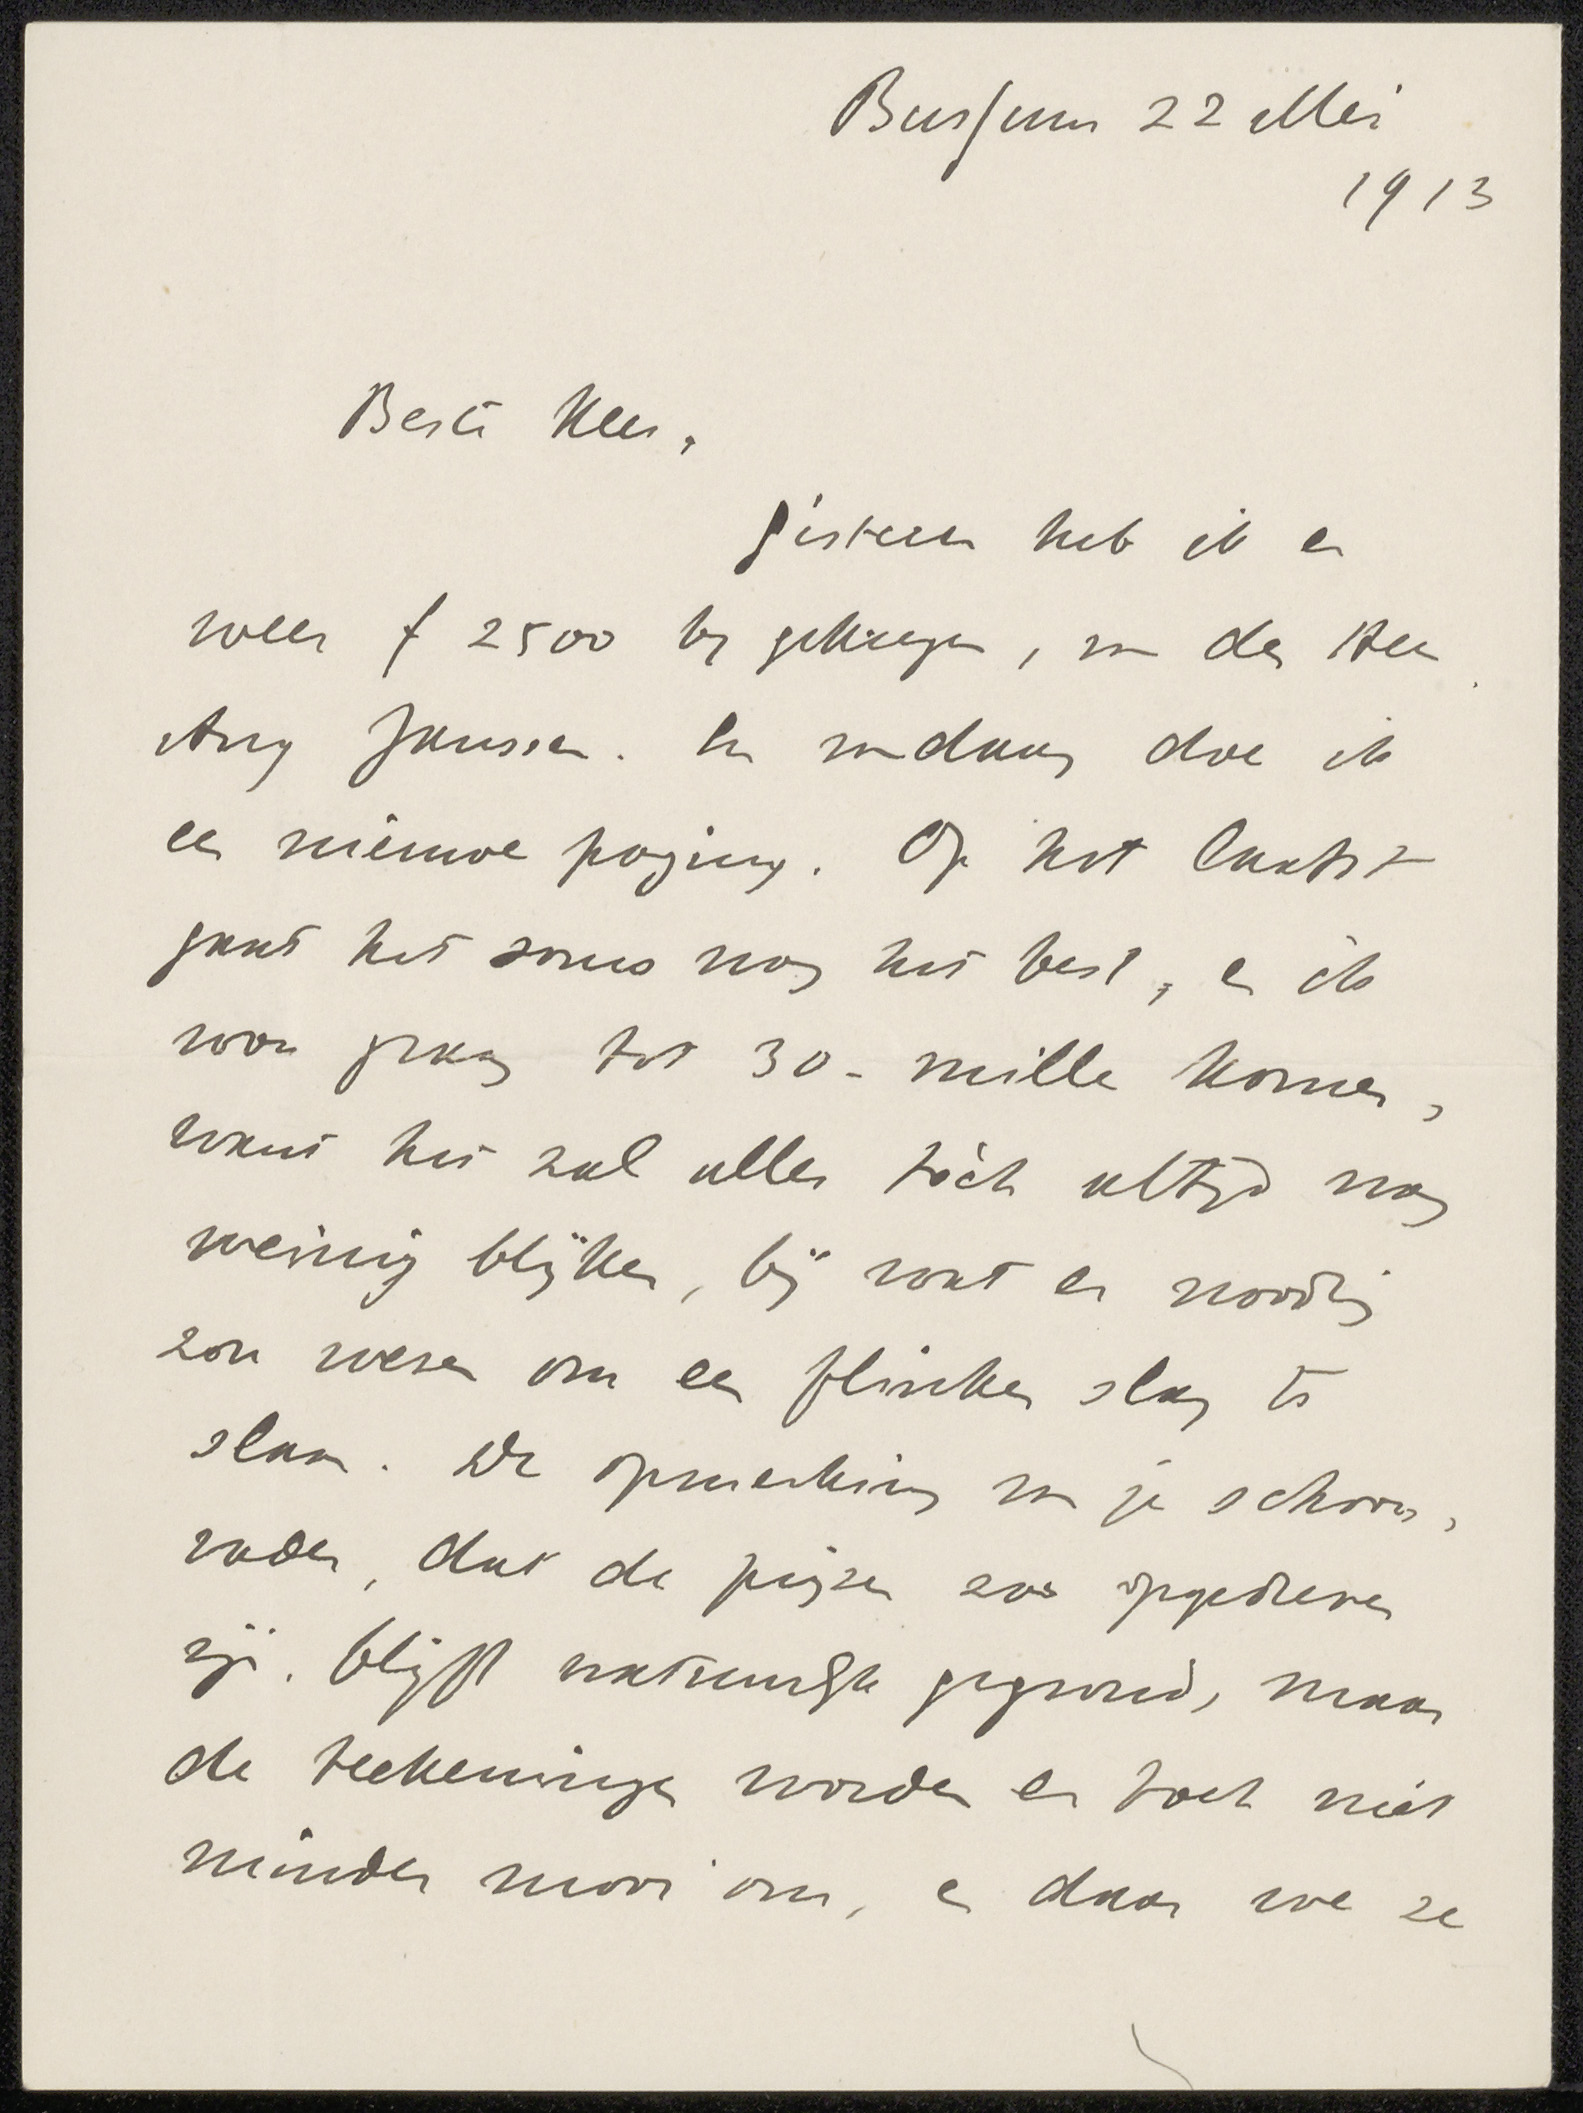 Bussum 22 Mei
1913
Beste Kees,
Gisteren heb ik er
weer f 2500 bij gekregen, van den Heer
Aug Janssen. En vandaag doe ik
een nieuwe poging. Op het laatst
gaat het soms nog het best, en ik
wou graag tot 30-mille komen,
want het zal alles tòch altijd nog
weinig blijken, bij wat er noodig
zou wezen om een flinken slag te
slaan. De opmerking van je schoon-
vader, dat de prijzen zoo opgedreven
zijn, blijft natuurlijk gegrond, maar
de teekeningen worden er toch niet
minder mooi om, en daar we ze